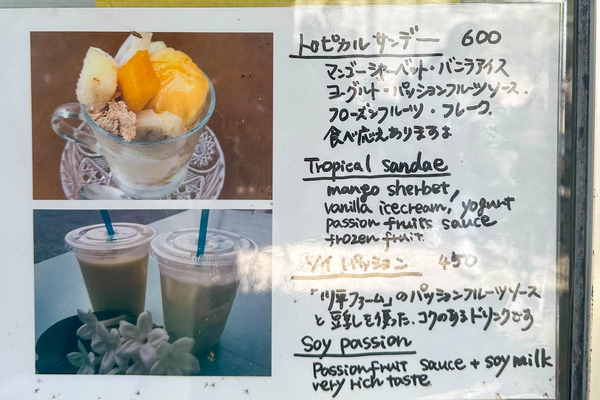 トロピカルサンデー 600
マンゴーシャーベット・バニラアイス
ヨーグルト・パッションフルーツソース.
フローズンフルーツ・フレーク.
食べ応えあります
Tropical sandae
mango sherbet,
vanilla icecream, yogurt
passion fruits sauce
frozen fruit.
ソイ パッション 450
ファーム」のパッションフルーツソース
と豆乳を使った.コクのあるドリンクです
Soy passion
Passionfruit sauce + soy milk
very rich taste.